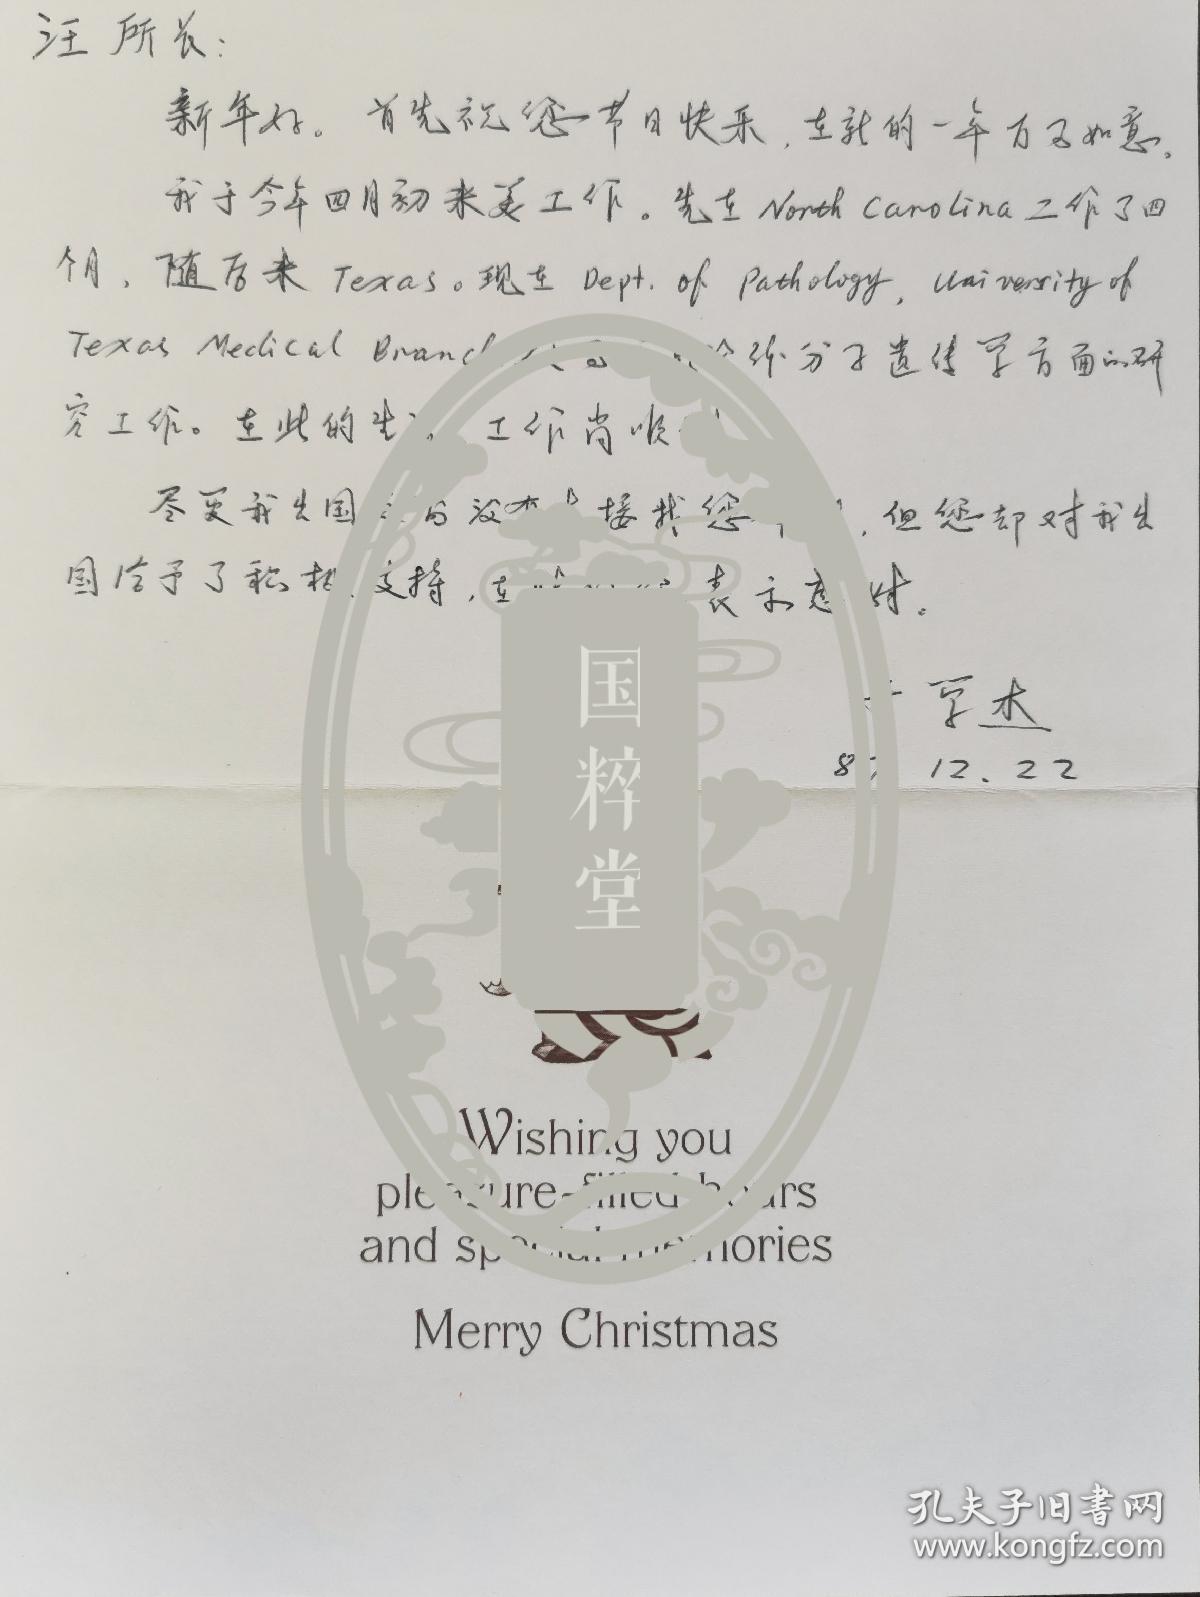 汪所长：
新年好。首先祝您节日快乐，在新的一年万事如意。
我于今年四月初来美工作。先在 North Carolina 工作了四
个月，随后来 Texas。现在 Dept. of Pathology, University of
Texas Medical Branch 分子遗传学方面的研
究工作。在此的生 工作尚顺
尽管我出国 没有直接找您 ，但您却对我出
国给予了积极支持，在 表示感谢。
学杰
87.12.22
国粹堂
Wishing you
pleasure-filled hours
and special memories
Merry Christmas
孔夫子旧书网
www.kongfz.com